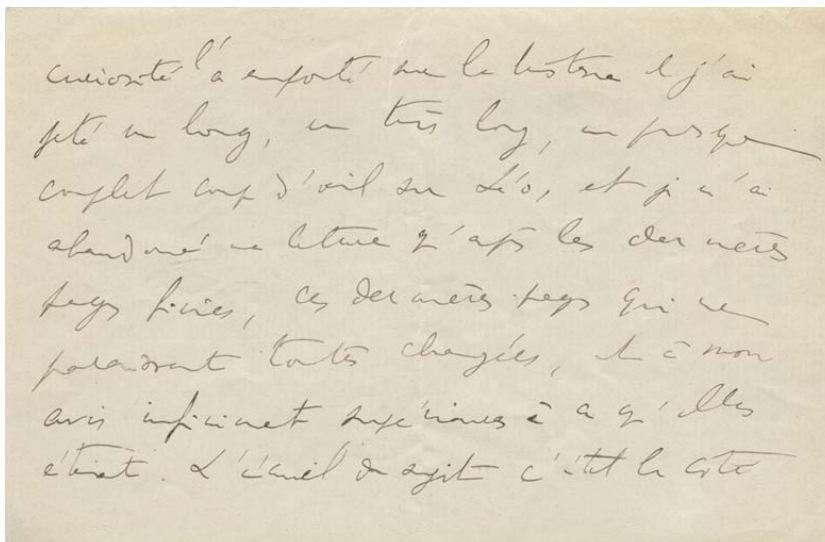 curiosité l'a emporté sur la
jeté un long, un très long, un presque
complet coup d'œil sur Léo, et je n'ai
abandonné ma lecture qu'après les dernières
pages finies, ces dernières pages qui me
paraissent toutes changées, et à mon
avis infiniment supérieures à ce qu'elles
étaient. L'écueil du sujet c'était le côté